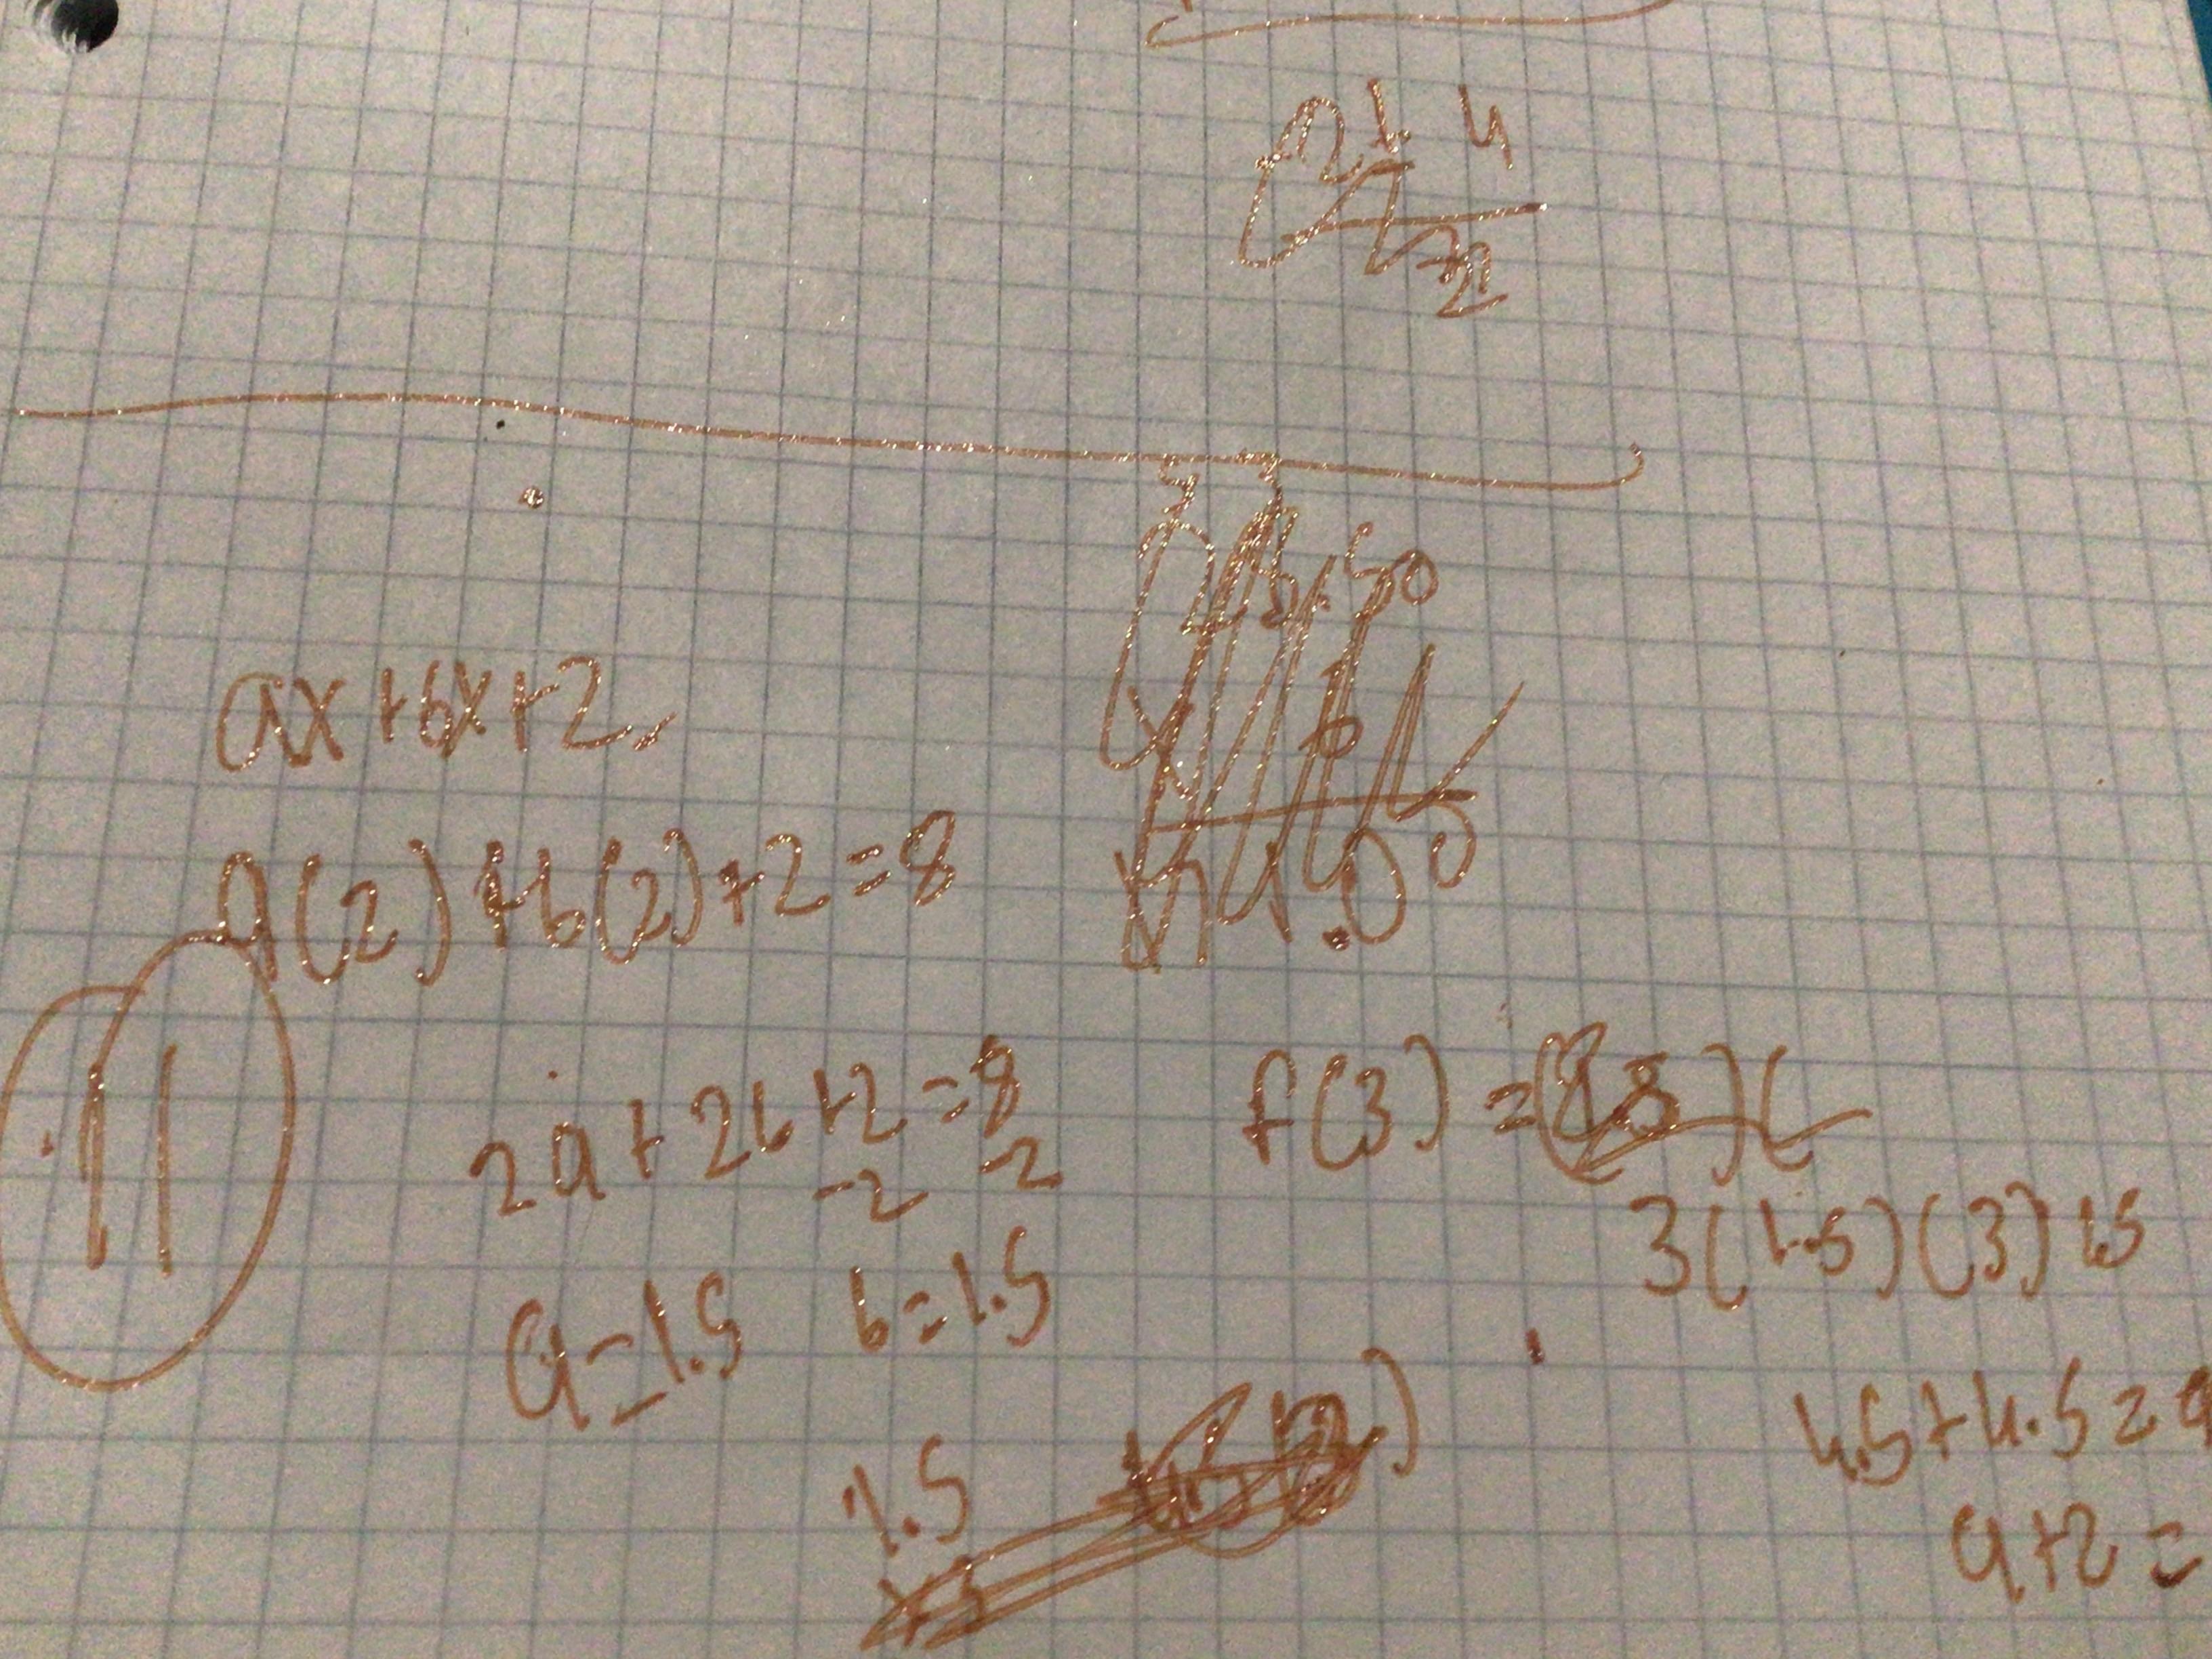 ax+bx+2
a(2)+b(2)+2=8
11
2a+2b+2=8
-2 -2
a=1.5 b=1.5
1.5
f(3)=
3(1.5)(3)1.5
4.5+4.5=9
9+2=